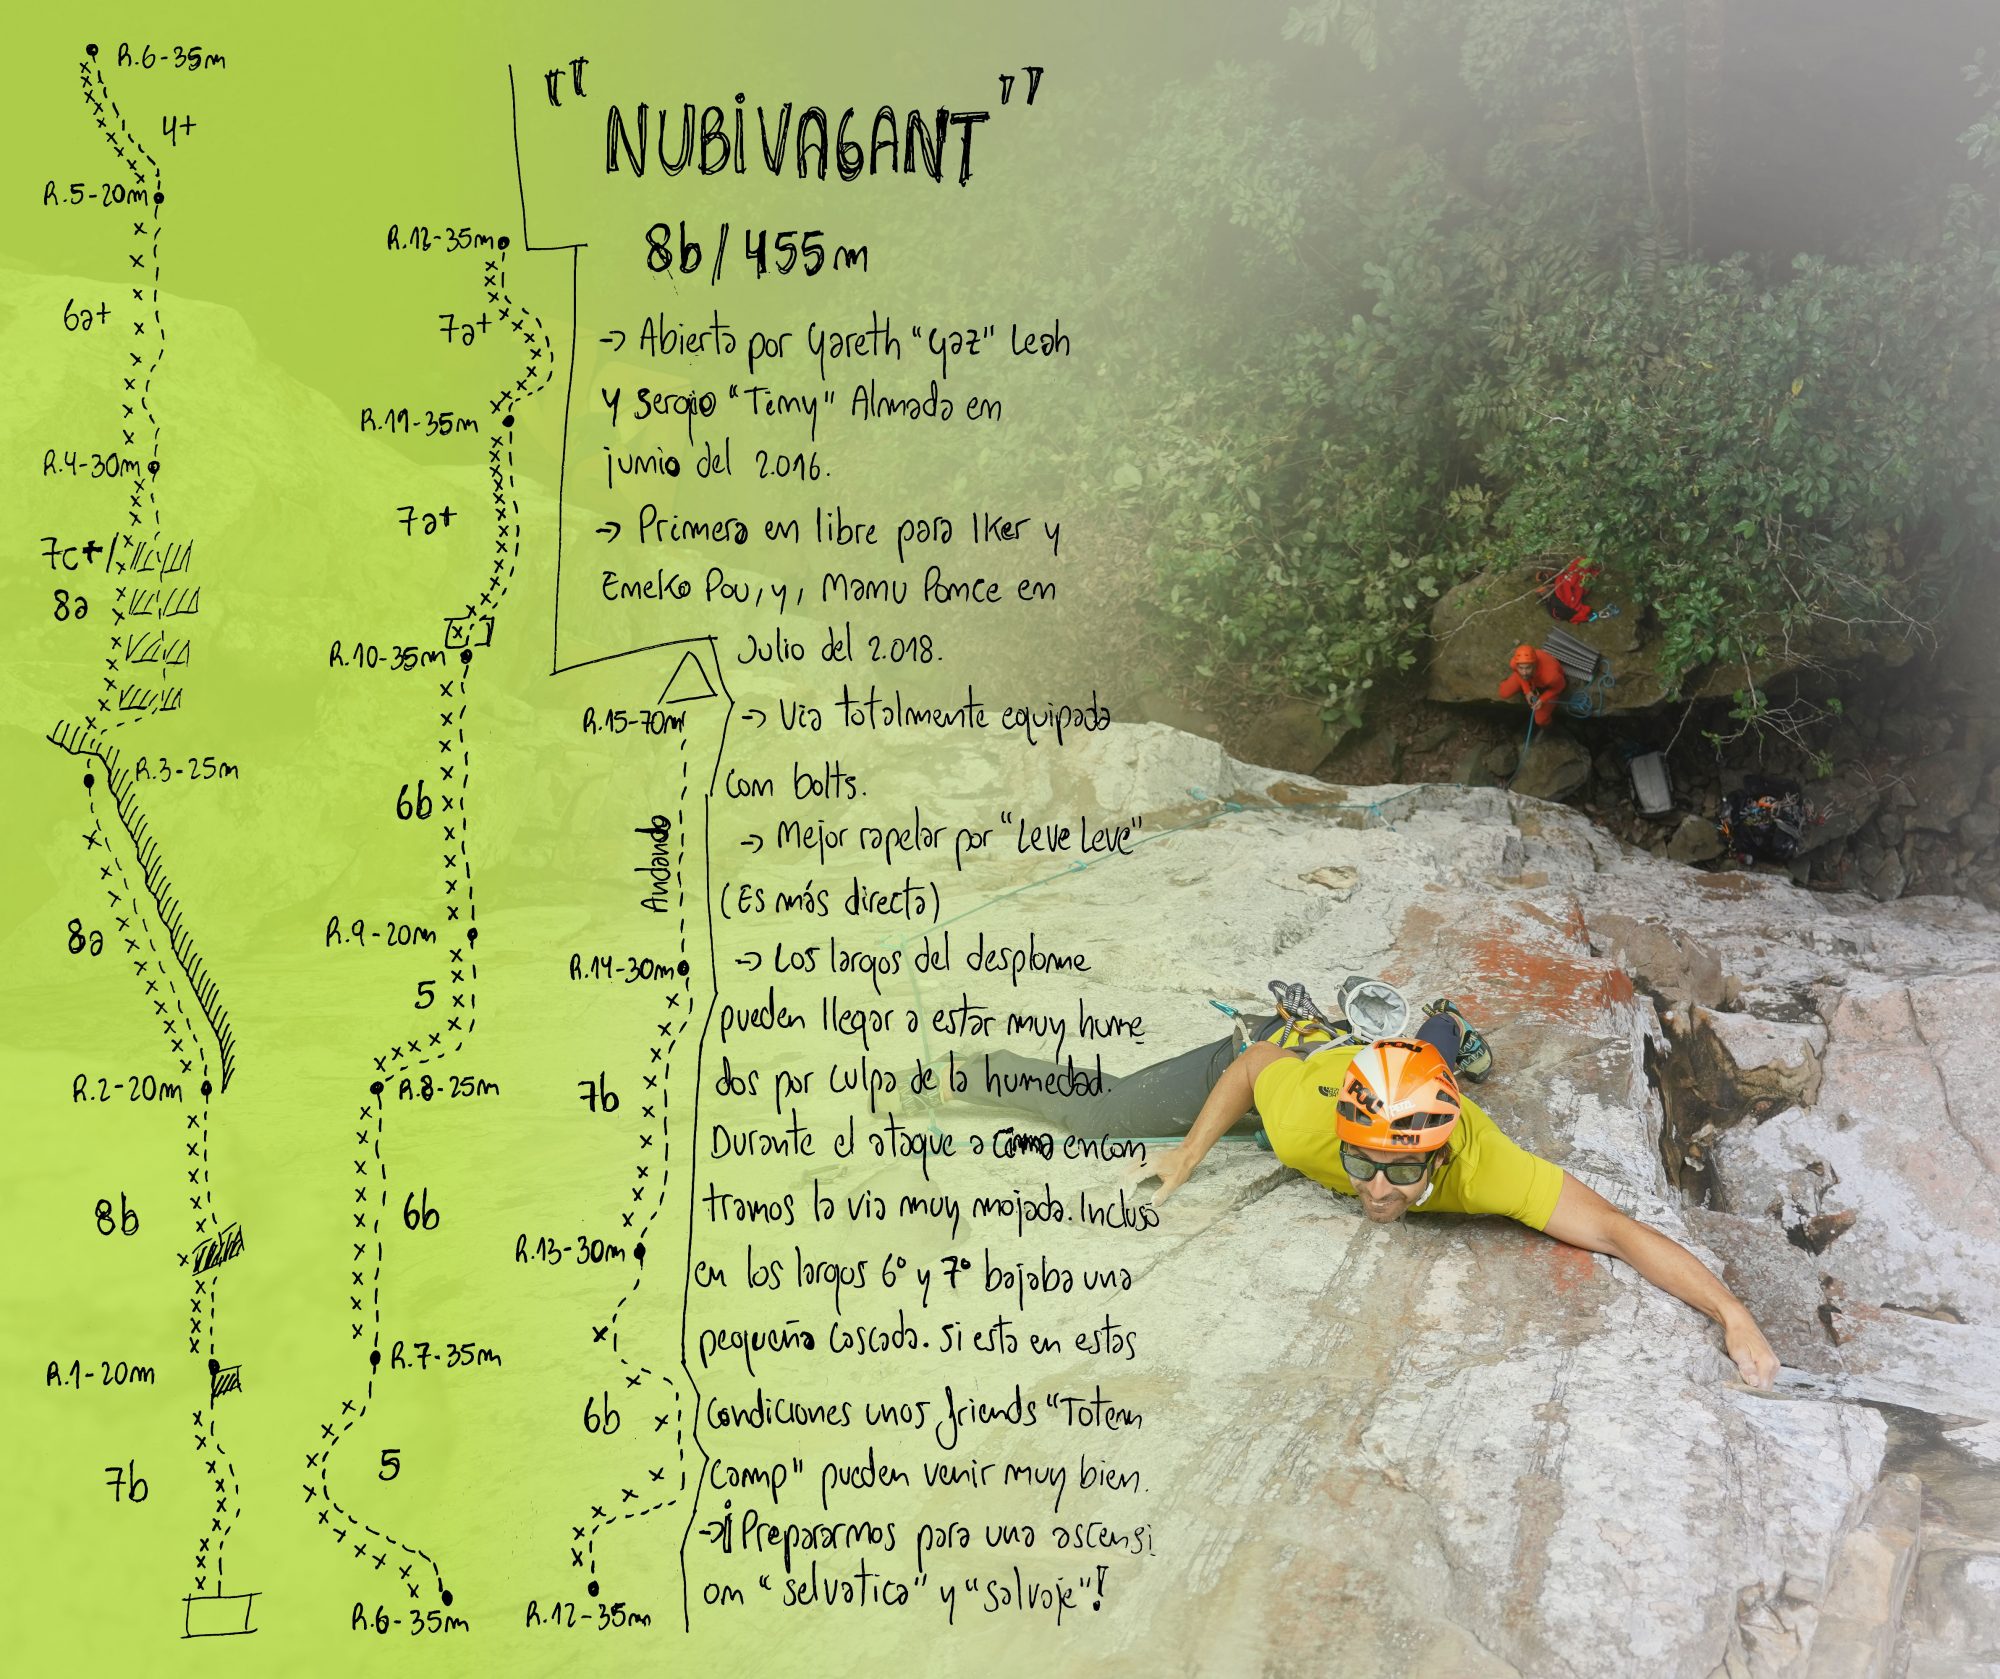 "NUBIVAGANT"
8b/455m
-> Abierta por Gareth "Gaz" Leah
y Sergio "Tiny" Almada en
junio del 2.016.
-> Primera en libre para Iker y
Eneko Pou, y, Manu Ponce en
Julio del 2.018.
-> Via totalmente equipada
con bolts.
-> Mejor rapelar por "Leve Leve"
(Es más directa)
-> Los largos del desplome
pueden llegar a estar muy hume
dos por culpa de la humedad.
Durante el ataque a cima encon
tramos la via muy mojada. Incluso
en los largos 6º y 7º bajaba una
pequeña cascada. Si esta en estas
condiciones unos friends "Totem
Camp" pueden venir muy bien.
-> ¡Prepararnos para una ascensi
on "selvatica" y "salvaje"!
R.6-35m
4+
R.5-20m
6a+
R.4-30m
7c+/
8a
R.3-25m
8a
R.2-20m
8b
R.1-20m
7b
R.12-35m
7a+
R.11-35m
7a+
R.10-35m
6b
R.9-20m
5
R.8-25m
6b
R.7-35m
5
R.6-35m
R.15-70m
Andando
R.14-30m
7b
R.13-30m
6b
R.12-35m
POU
POU
POU